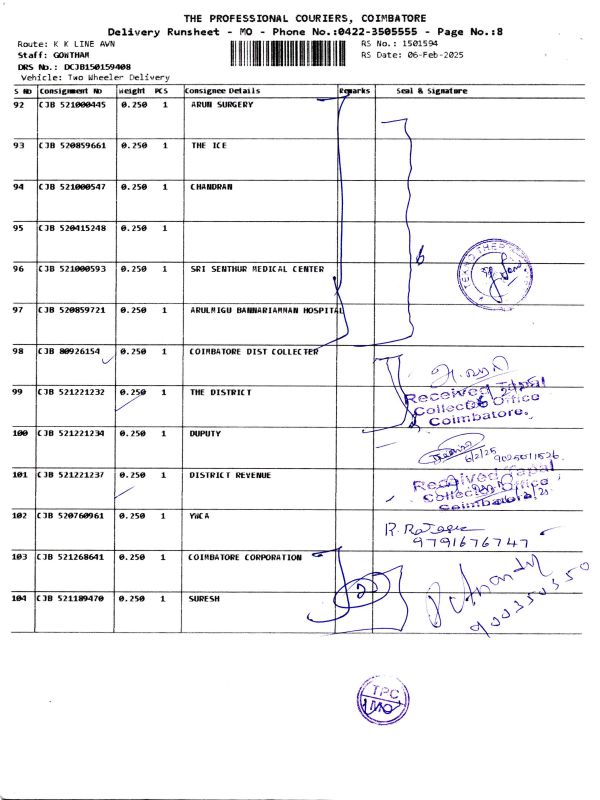 THE PROFESSIONAL COURIERS, COIMBATORE
Delivery Runsheet - MO - Phone No.:0422-3505555 - Page No.:8
Route: K K LINE AVN
RS No.: 1501594
Staff: GOWTHAM
RS Date: 06-Feb-2025
DRS No.: DCJB150159408
Vehicle: Two Wheeler Delivery
S No Consignment No Weight PCS Consignee Details Remarks Seal & Signature
92 CJB 521000445 0.250 1 ARUN SURGERY
93 CJB 520859661 0.250 1 THE ICE
94 CJB 521000547 0.250 1 CHANDRAN
95 CJB 520415248 0.250 1
6
96 CJB 521000593 0.250 1 SRI SENTHUR MEDICAL CENTER
97 CJB 520859721 0.250 1 ARULMIGU BANNARIAMMAN HOSPITAL
98 CJB 80926154 0.250 1 COIMBATORE DIST COLLECTER
99 CJB 521221232 0.250 1 THE DISTRICT
Received Tapal
Collectors Office
Coimbatore.
100 CJB 521221234 0.250 1 DUPUTY
6/2/25 9025011526
101 CJB 521221237 0.250 1 DISTRICT REVENUE
Received Tapal
Collectors Office
Coimbatore
102 CJB 520760961 0.250 1 YWCA
R. Rajagee
9791676747
103 CJB 521268641 0.250 1 COIMBATORE CORPORATION
104 CJB 521189470 0.250 1 SURESH
2
900350350
TPC
MO